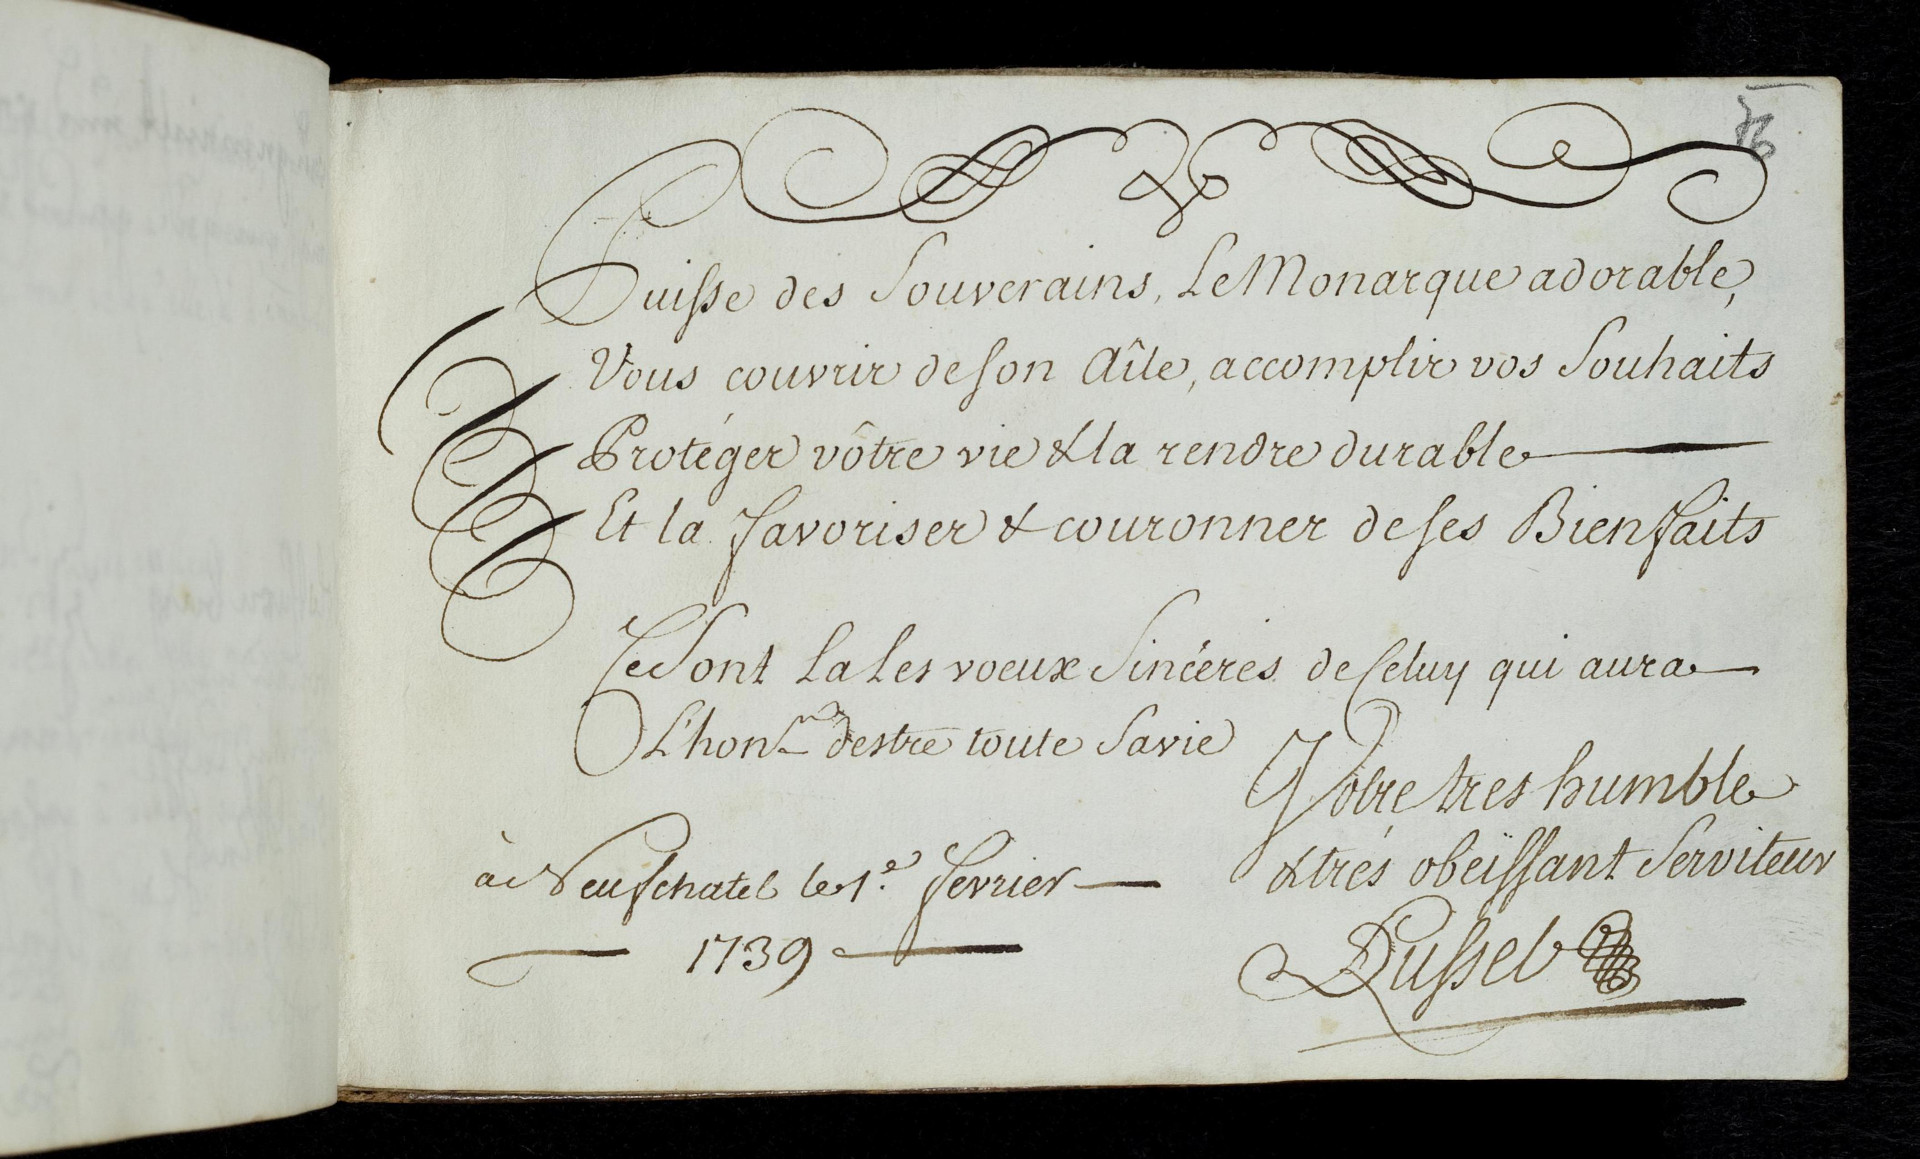 76
Puisse des Souverains, Le Monarque adorable,
Vous couvrir de son Aîle, accomplir vos Souhaits
Protéger vôtre vie & la rendre durable
Et la favoriser & couronner de ses Bienfaits
Ce Sont La Les voeux Sincéres de Celuy qui aura
L'hon.r d'estre toute Savie
Vôtre tres humble
& trés obeïssant Serviteur
à Neufchatel le 1.e fevrier
1739